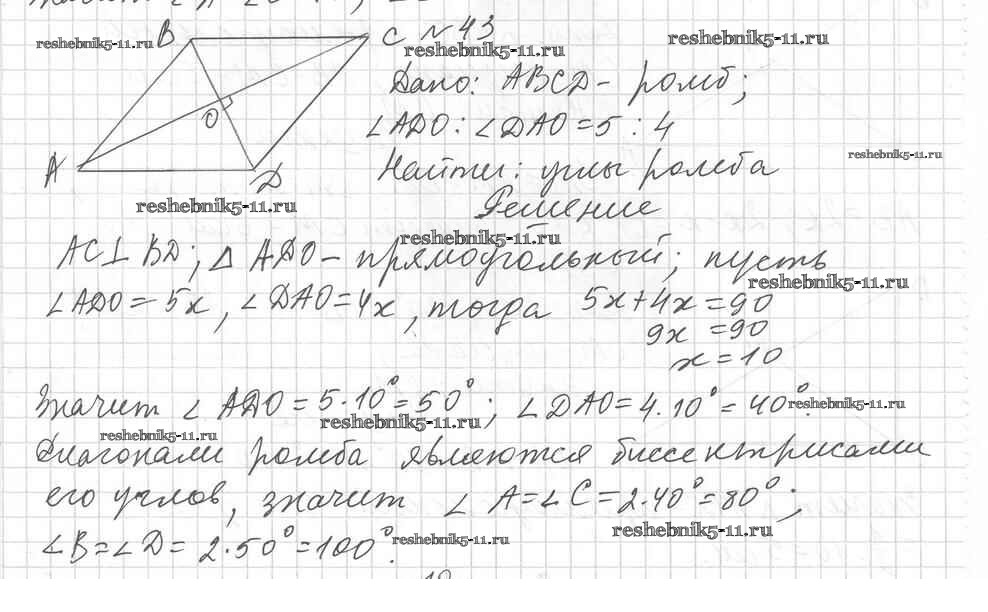 reshebnik5-11.ru B C №43
reshebnik5-11.ru reshebnik5-11.ru
Дано: ABCD - ромб;
O ∠ADO : ∠DAO = 5 : 4
A Найти: углы ромба reshebnik5-11.ru
D
reshebnik5-11.ru Решение
reshebnik5-11.ru
AC⊥BD; △ADO - прямоугольный; пусть
reshebnik5-11.ru
∠ADO = 5x, ∠DAO = 4x, тогда 5x+4x=90
9x = 90
x = 10
Значит ∠ADO = 5·10° = 50°; ∠DAO = 4·10° = 40°. reshebnik5-11.ru
reshebnik5-11.ru reshebnik5-11.ru
Диагонали ромба являются биссектрисами
его углов, значит ∠A=∠C=2·40°=80°;
reshebnik5-11.ru
∠B=∠D= 2·50°=100°. reshebnik5-11.ru